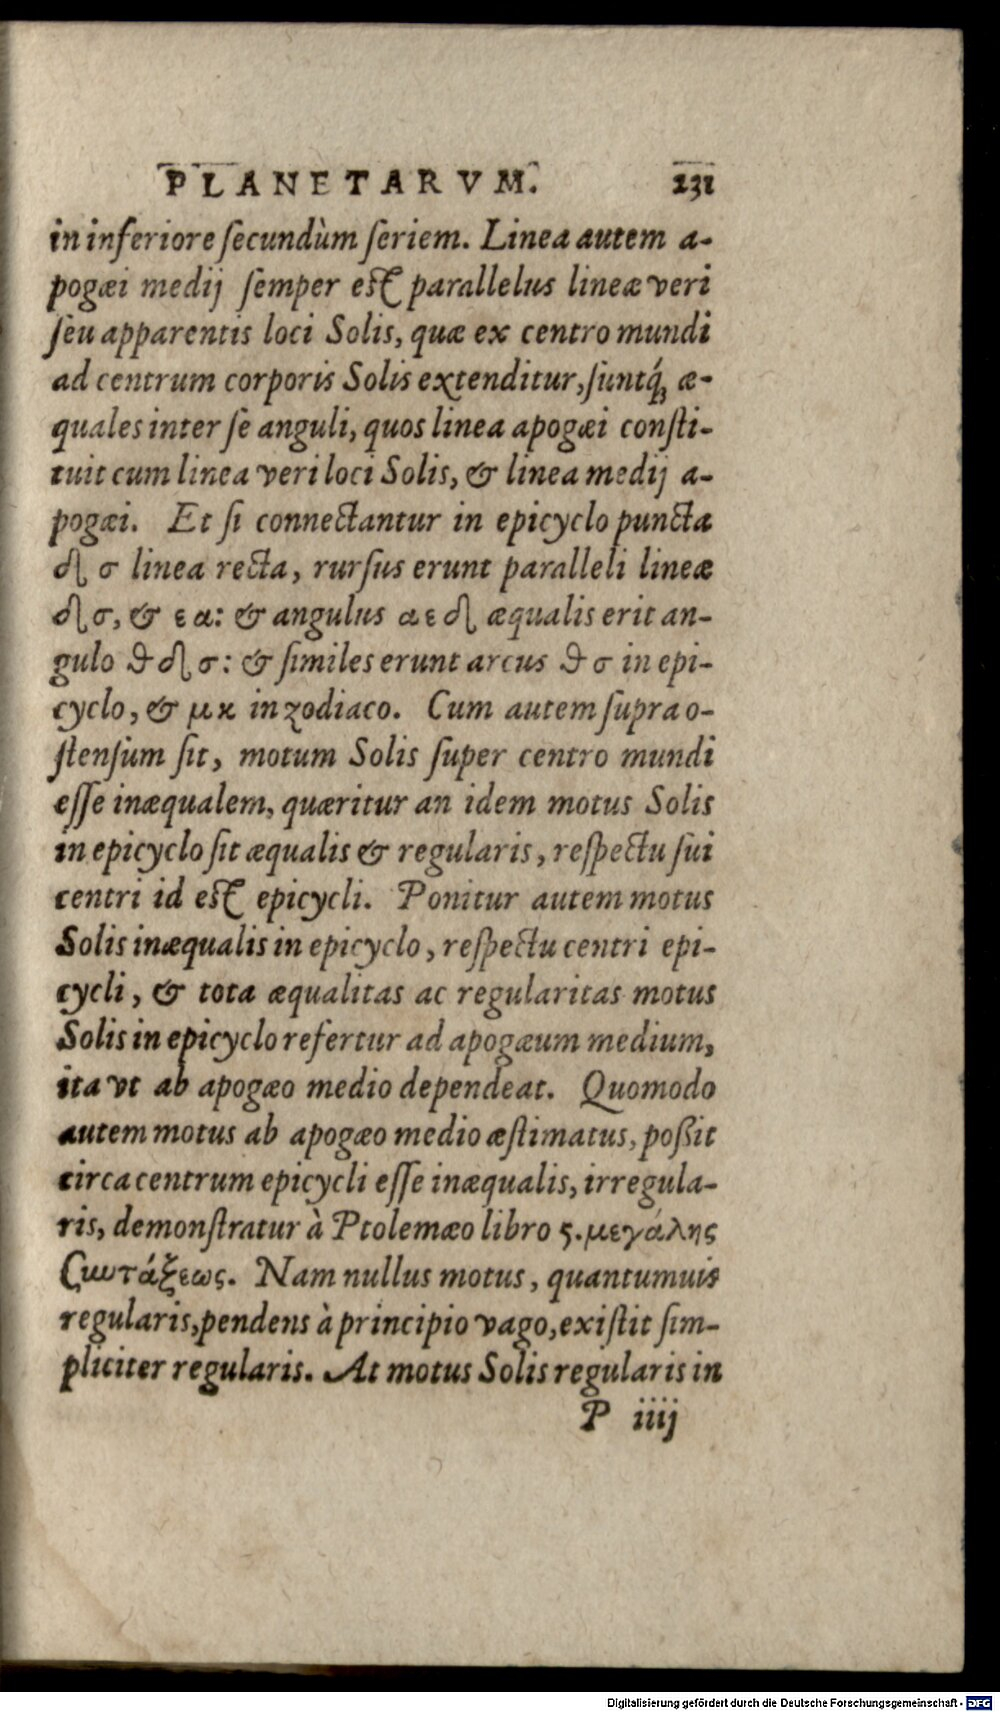 PLANETARVM. 231
in inferiore ſecundùm ſeriem. Linea autem a-
pogæi medij ſemper eſt parallelus lineæ veri
ſeu apparentis loci Solis, quæ ex centro mundi
ad centrum corporis Solis extenditur, ſuntq́; æ-
quales inter ſe anguli, quos linea apogæi conſti-
tuit cum linea veri loci Solis, & linea medij a-
pogæi. Et ſi connectantur in epicyclo puncta
δ σ linea recta, rurſus erunt paralleli lineæ
δ σ, & ε α: & angulus α ε δ æqualis erit an-
gulo ϑ δ σ: & ſimiles erunt arcus ϑ σ in epi-
cyclo, & μ κ in zodiaco. Cum autem ſupra o-
ſtenſum ſit, motum Solis ſuper centro mundi
eſſe inæqualem, quæritur an idem motus Solis
in epicyclo ſit æqualis & regularis, reſpectu ſui
centri id eſt epicycli. Ponitur autem motus
Solis inæqualis in epicyclo, reſpectu centri epi-
cycli, & tota æqualitas ac regularitas motus
Solis in epicyclo refertur ad apogæum medium,
ita vt ab apogæo medio dependeat. Quomodo
autem motus ab apogæo medio æſtimatus, poßit
circa centrum epicycli eſſe inæqualis, irregula-
ris, demonſtratur à Ptolemæo libro 5. μεγάλης
Συντάξεως. Nam nullus motus, quantumuis
regularis, pendens à principio vago, exiſtit ſim-
pliciter regularis. At motus Solis regularis in
P iiij
Digitalisierung gefördert durch die Deutsche Forschungsgemeinschaft - DFG